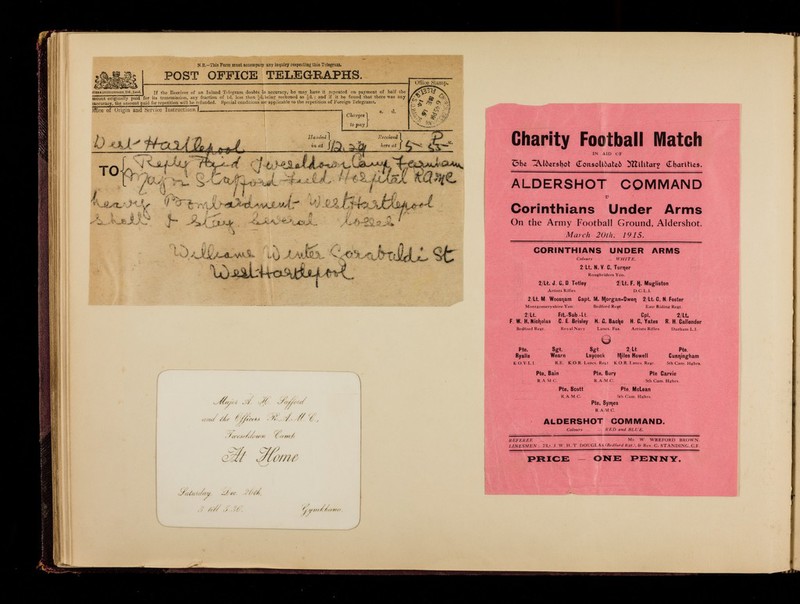 N.B.—This Form must accompany any inquiry respecting this Telegram.
POST OFFICE TELEGRAPHS.
Office Stamp.
If the Receiver of an Inland Telegram doubts its accuracy, he may have it repeated on payment of half the
amount originally paid for its transmission, any fraction of 1d. less than ½d. being reckoned as ½d.; and if it be found that there was any
inaccuracy, the amount paid for repetition will be refunded. Special conditions are applicable to the repetition of Foreign Telegrams.
Office of Origin and Service Instructions.
Charges to pay
s. d.
West Hartlepool
Handed in at
12.29
Received here at
5-55 P
TO
Reply Paid Tweseldown Camp Farnham
Major Stafford Field Hospital RAMC
heavy Bombardment West Hartlepool
Shall I Stay Several losses
Williams Winter Garabaldi St
West Hartlepool
Major A. H. Safford
and the Officers R.A.M.C.,
Tweseldown Camp
At Home
Saturday, Dec. 26th,
3 till 5.30.
Gymkhana.
Charity Football Match
IN AID OF
The Aldershot Consolidated Military Charities.
ALDERSHOT COMMAND
v
Corinthians Under Arms
On the Army Football Ground, Aldershot.
March 20th, 1915.
CORINTHIANS UNDER ARMS
Colours WHITE.
2/Lt. N. V. C. Turner
Roughriders Yeo.
2/Lt. J. G. D Tetley 2/Lt. F. H. Mugliston
Artists Rifles D.C.L.I.
2/Lt. M. Woosnam Capt. M. Morgan-Owen 2/Lt. G. N. Foster
Montgomeryshire Yeo. Bedford Regt East Riding Regt.
2/Lt. Flt.-Sub-Lt. Cpl. 2/Lt.
F. W. H. Nicholas C. E. Brisley H. G. Bache H. G. Yates R. H Callender
Bedford Regt. Royal Navy Lancs. Fus. Artists Rifles Durham L.I.
Pte. Sgt. Sgt 2/Lt Pte.
Ryalls Weore Laycock Miles Howell Cunningham
K.O.Y.L.I. R.E. K.O.R. Lancs. Regt K.O.R. Lancs. Regt 5th Cam. Highrs.
Pte. Bain Pte. Bury Pte Carvie
R.A.M.C. R.A.M.C. 5th Cam. Highrs.
Pte. Scott Pte. McLean
R.A.M.C. 5th Cam. Highrs.
Pte. Symes
R.A.M.C.
ALDERSHOT COMMAND.
Colours RED and BLUE.
REFEREE Mr. W. WREFORD BROWN
LINESMEN: 2Lt J. W. H. T. DOUGLAS (Bedford Rgt.) & Rev. G. STANDING, C.F.
PRICE — ONE PENNY.